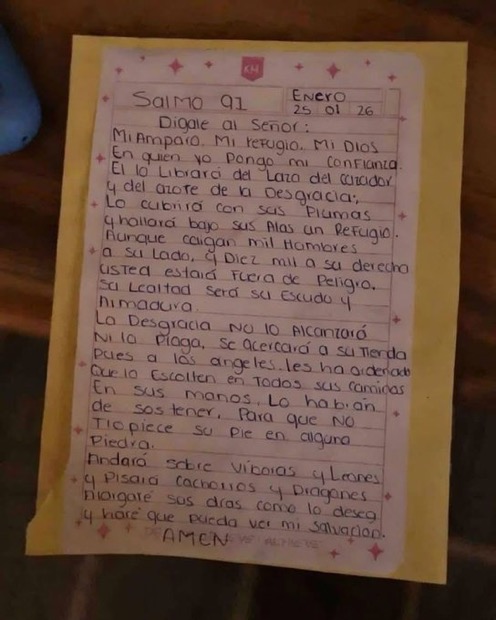 Salmo 91
Enero
25 01 26
Digale al Señor:
Mi Amparo. Mi refugio. Mi Dios
En quien yo Pongo mi confianza.
El lo Librará del Lazo del cazador
y del azote de la Desgracia;
Lo cubrirá con sus Plumas
y hallará bajo sus Alas un Refugio.
Aunque caigan mil Hombres
a su Lado, y Diez mil a su derecha
usted estará Fuera de Peligro.
su Lealtad será su Escudo y
Armadura.
La Desgracia No lo Alcanzará
Ni la Plaga, se acercará a su Tienda
pues a los angeles les ha ordenado
Que lo Escolten en Todos sus caminos
En sus manos. Lo habrán
de sostener. Para que NO
Tropiece su Pie en alguna
Piedra.
Andará sobre Víboras y Leones
y Pisará cachorros y Dragones
Alargaré sus días como lo desea
y haré que pueda ver mi salvación.
AMEN